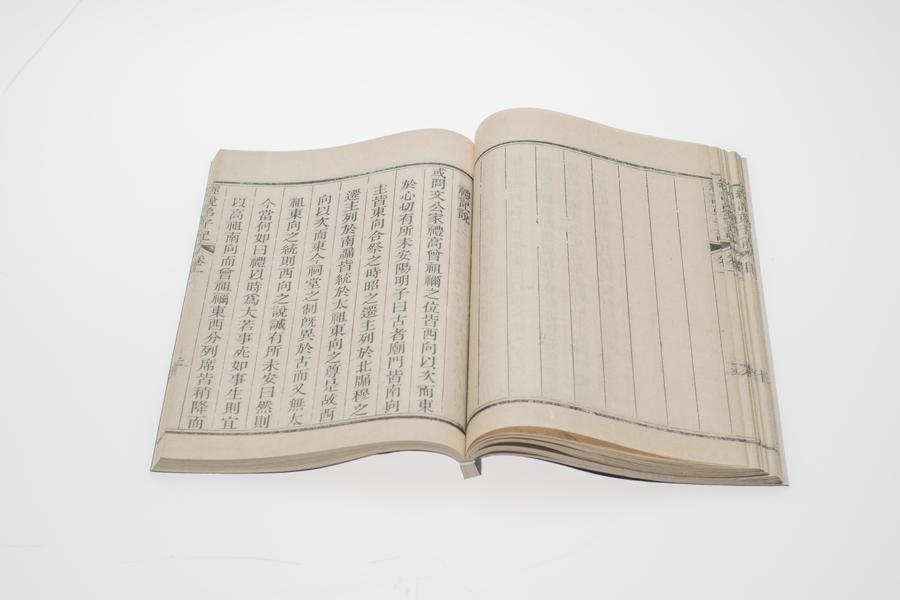 禮記說
或問文公家禮高曾祖禰之位皆西向以次而東
於心切有所未安陽明子曰古者廟門皆南向
主皆東向合祭之時昭之遷主列於北牖穆之
遷主列於南牖皆統於太祖東向之尊是故西
向以次而東今祠堂之制旣異於古而又無太
祖東向之統則西向之說誠有所未安曰然則
今當何如曰禮以時爲大若事死如事生則宜
以高祖南向而曾祖禰東西分列席皆稍降而
經說弟子記 卷一